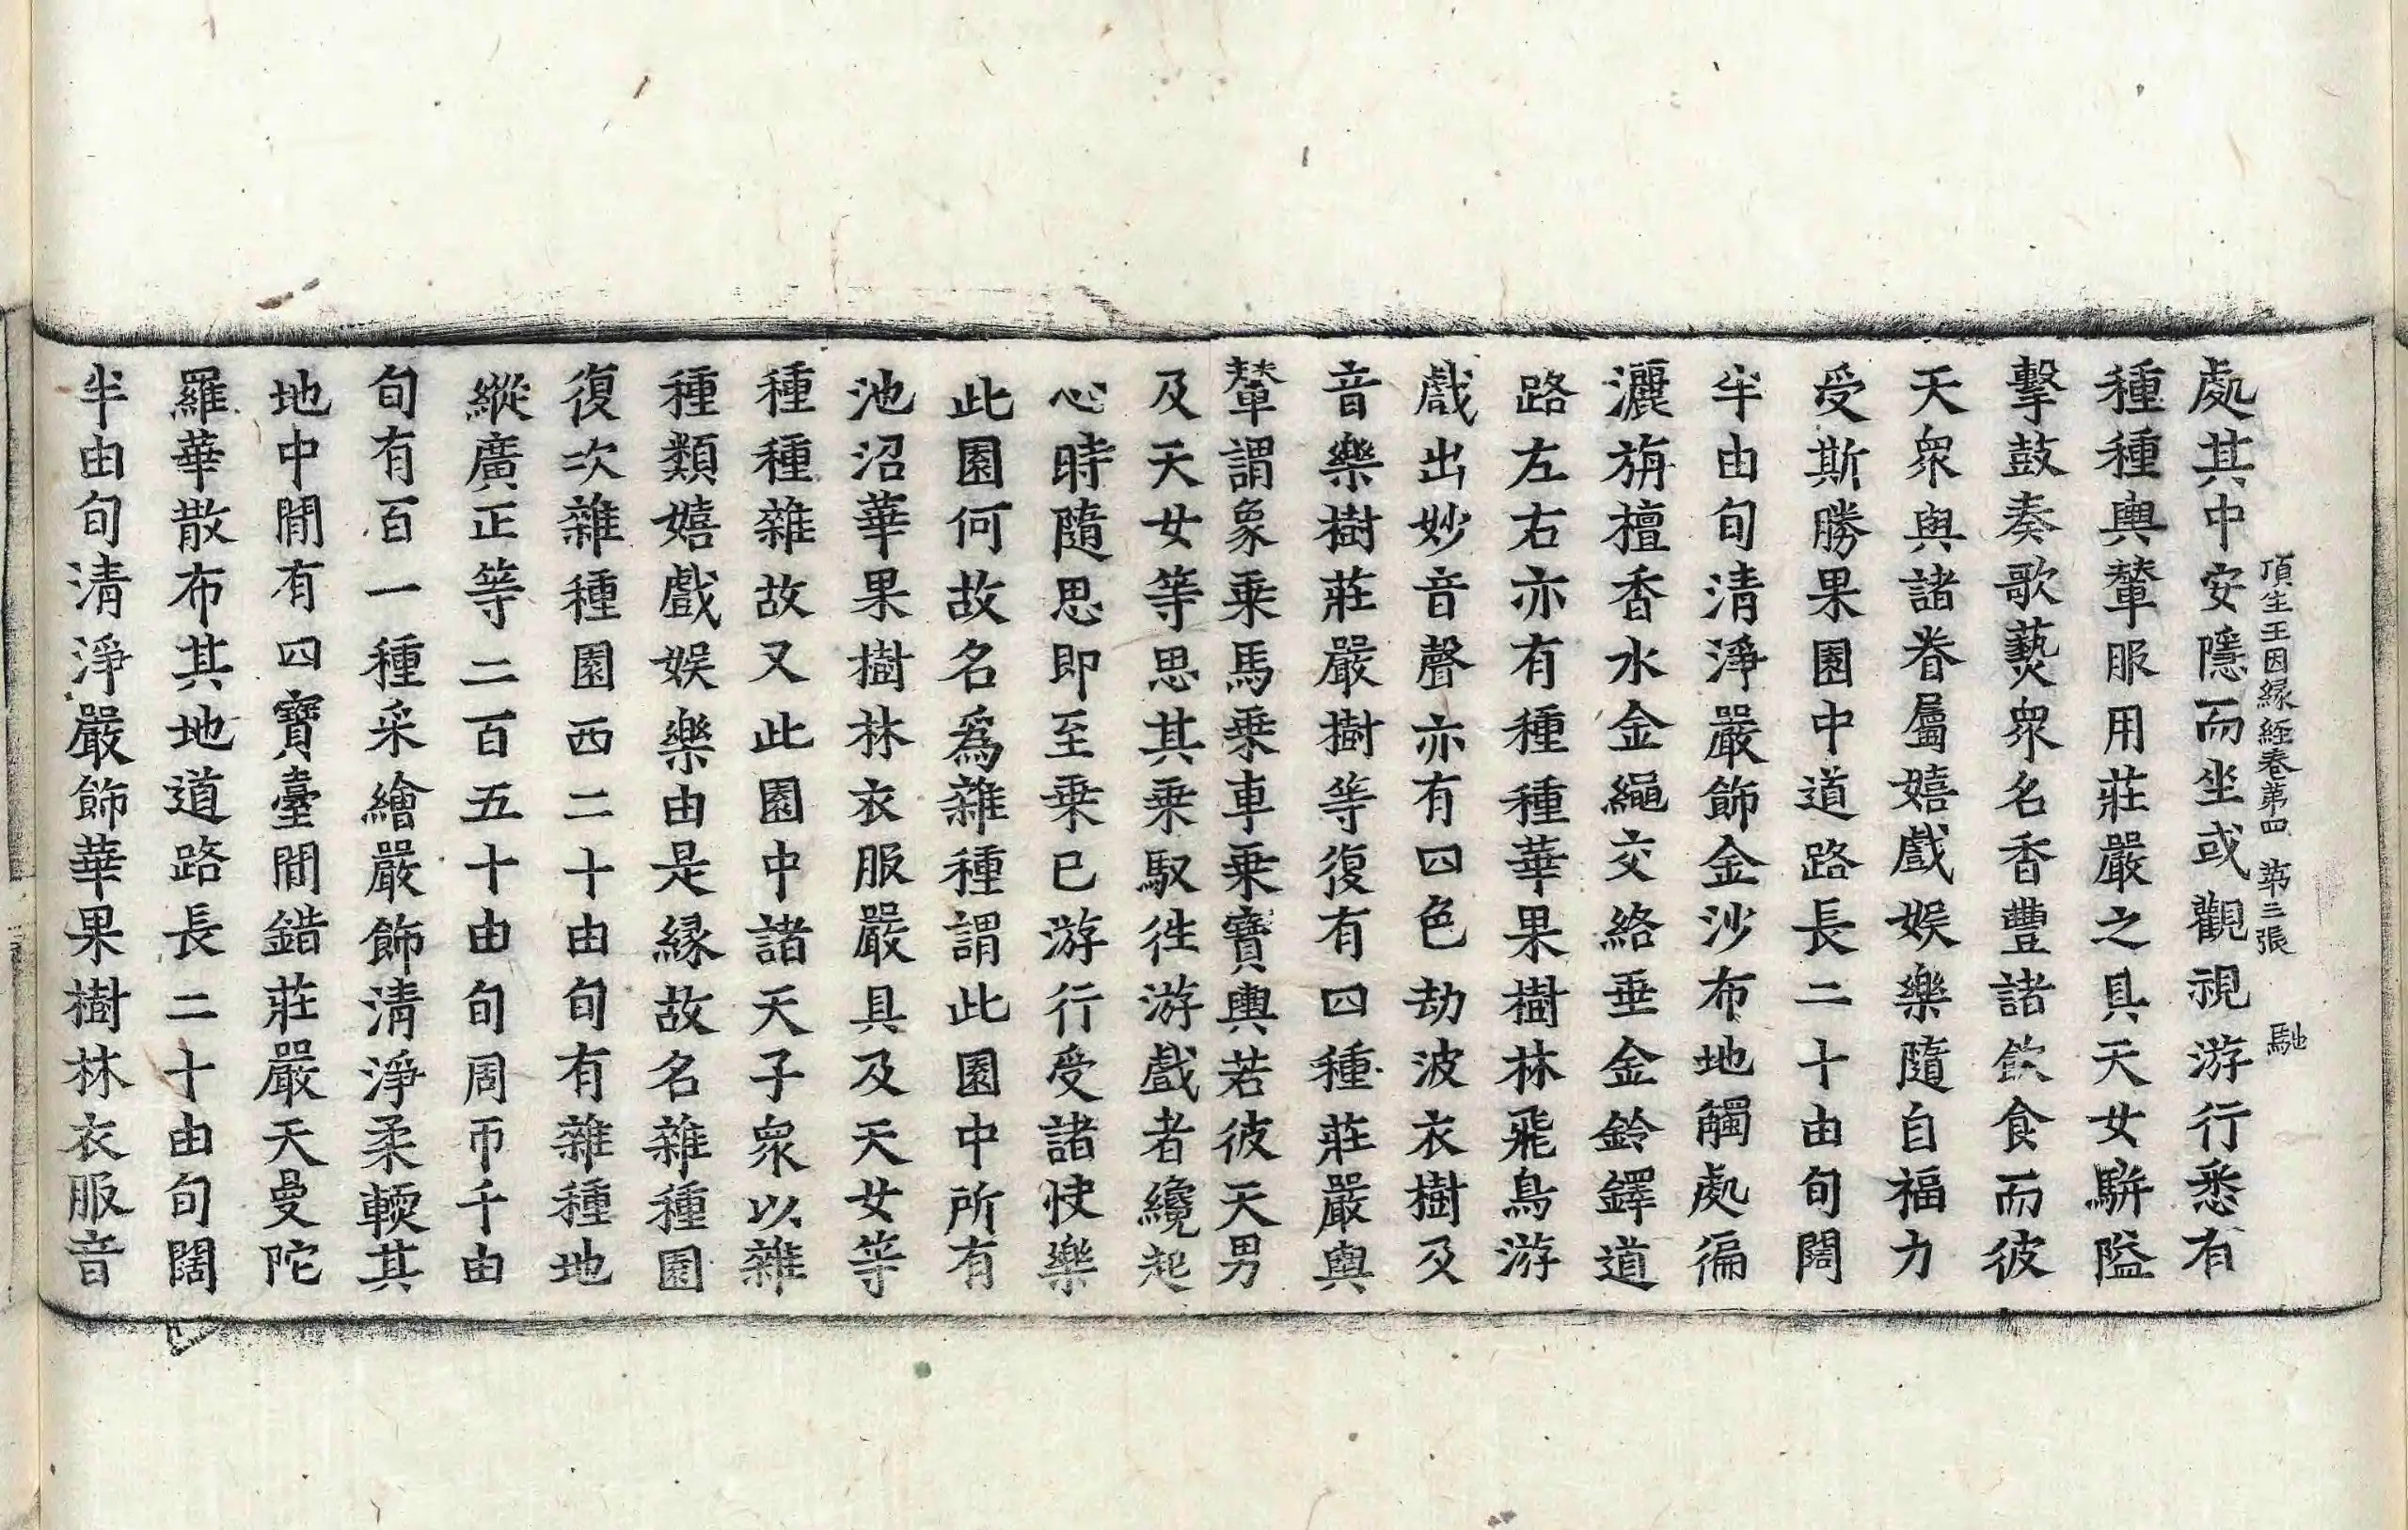 頂生王因縁經卷第四 第三張 馳
處其中安隱而坐或觀視游行悉有
種種輿輦服用莊嚴之具天女駢隘
擊鼓奏歌爇衆名香豐諸飲食而彼
天衆與諸眷屬嬉戲娛樂隨自福力
受斯勝果園中道路長二十由旬闊
半由旬清淨嚴飾金沙布地觸處徧
灑旃檀香水金繩交絡垂金鈴鐸道
路左右亦有種種華果樹林飛鳥游
戲出妙音聲亦有四色劫波衣樹及
音樂樹莊嚴樹等復有四種莊嚴輿
輦謂象乗馬乗車乗寶輿若彼天男
及天女等思其乗馭徃游戲者纔起
心時隨思即至乗已游行受諸快樂
此園何故名爲雜種謂此園中所有
池沼華果樹林衣服嚴具及天女等
種種雜故又此園中諸天子衆以雜
種類嬉戲娛樂由是縁故名雜種園
復次雜種園西二十由旬有雜種地
縱廣正等二百五十由旬周帀千由
旬有百一種采繪嚴飾清淨柔輭其
地中間有四寶臺間錯莊嚴天曼陀
羅華散布其地道路長二十由旬闊
半由旬清淨嚴飾華果樹林衣服音